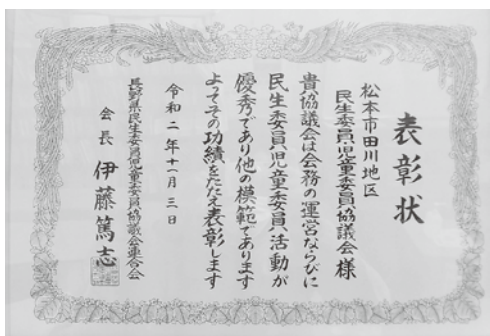 表彰状
松本市田川地区
民生委員児童委員協議会 様
貴協議会は会務の運営ならびに
民生委員児童委員活動が
優秀であり他の模範であります
よってその功績をたたえ表彰します
令和二年十一月三日
長野県民生委員児童委員協議会連合会
会長 伊藤篤志